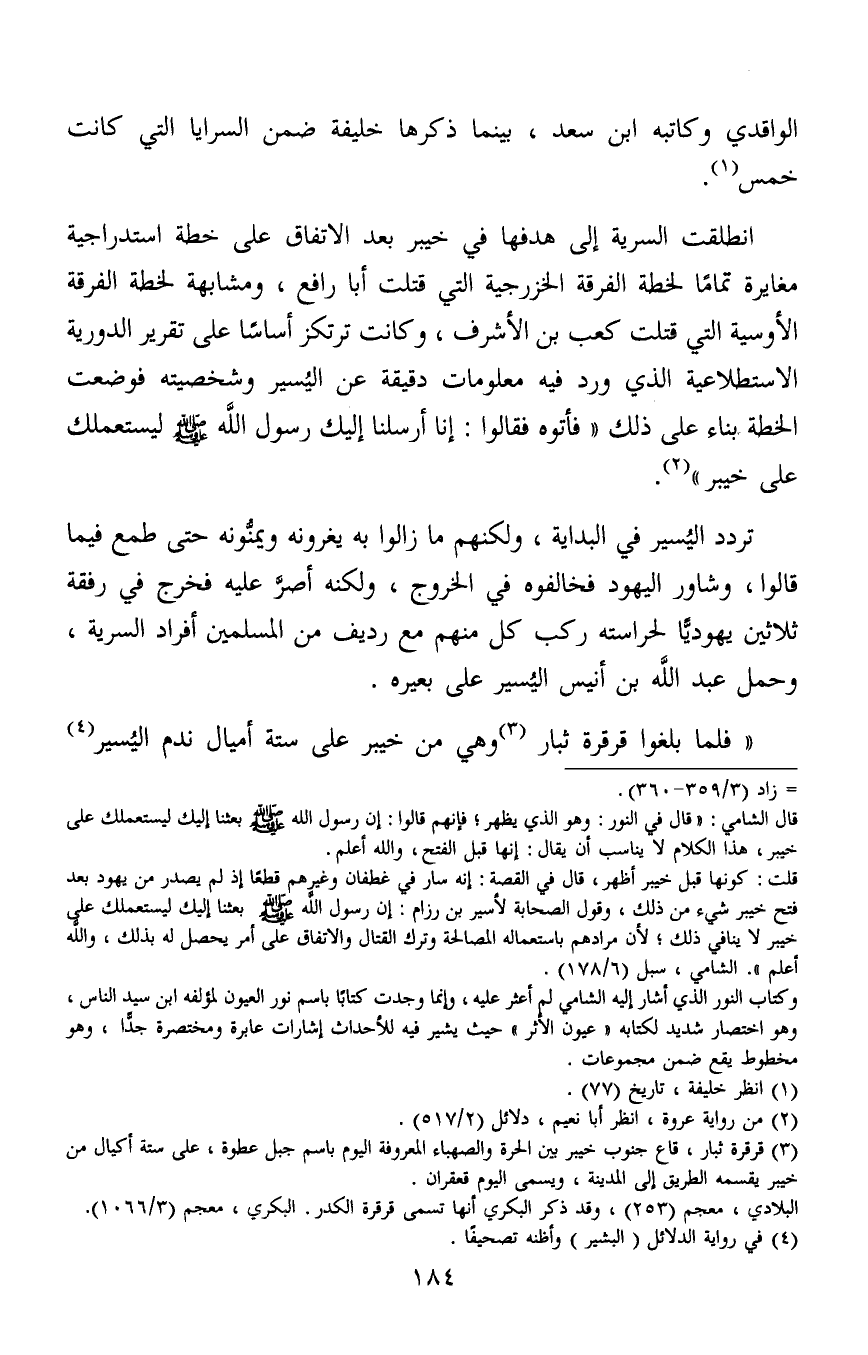 الواقدي وكاتبه ابن سعد ، بينما ذكرها خليفة ضمن السرايا التي كانت
خمس(١).
انطلقت السرية إلى هدفها في خيبر بعد الاتفاق على خطة استدراجية
مغايرة تمامًا لخطة الفرقة الخزرجية التي قتلت أبا رافع ، ومشابهة لخطة الفرقة
الأوسية التي قتلت كعب بن الأشرف ، وكانت ترتكز أساسًا على تقرير الدورية
الاستطلاعية الذي ورد فيه معلومات دقيقة عن اليُسير وشخصيته فوضعت
الخطة بناء على ذلك « فأتوه فقالوا : إنا أرسلنا إليك رسول اللَّه ﷺ ليستعملك
على خيبر »(٢).
تردد اليُسير في البداية ، ولكنهم ما زالوا به يغرونه ويمنُّونه حتى طمع فيما
قالوا ، وشاور اليهود فخالفوه في الخروج ، ولكنه أصرَّ عليه فخرج في رفقة
ثلاثين يهوديًّا لحراسته ركب كل منهم مع رديف من المسلمين أفراد السرية ،
وحمل عبد اللَّه بن أنيس اليُسير على بعيره .
« فلما بلغوا قرقرة ثبار (٣)وهي من خيبر على ستة أميال ندم اليُسير(٤)
= زاد (٣٥٩/٣-٣٦٠) .
قال الشامي : « قال في النور : وهو الذي يظهر ؛ فإنهم قالوا : إن رسول الله ﷺ بعثنا إليك ليستعملك على
خيبر ، هذا الكلام لا يناسب أن يقال : إنها قبل الفتح ، والله أعلم .
قلت : كونها قبل خيبر أظهر ، قال في القصة : إنه سار في غطفان وغيرهم قطعًا إذ لم يصدر من يهود بعد
فتح خيبر شيء من ذلك ، وقول الصحابة لأسير بن رزام : إن رسول اللَّه ﷺ بعثنا إليك ليستعملك على
خيبر لا ينافي ذلك ؛ لأن مرادهم باستعماله المصالحة وترك القتال والاتفاق على أمر يحصل له بذلك ، واللَّه
أعلم ». الشامي ، سبل (١٧٨/٦) .
وكتاب النور الذي أشار إليه الشامي لم أعثر عليه ، وإنما وجدت كتابًا باسم نور العيون لمؤلفه ابن سيد الناس ،
وهو اختصار شديد لكتابه « عيون الأثر » حيث يشير فيه للأحداث إشارات عابرة ومختصرة جدًّا ، وهو
مخطوط يقع ضمن مجموعات .
(١) انظر خليفة ، تاريخ (٧٧) .
(٢) من رواية عروة ، انظر أبا نعيم ، دلائل (٥١٧/٢) .
(٣) قرقرة ثبار ، قاع جنوب خيبر بين الحرة والصهباء المعروفة اليوم باسم جبل عطوة ، على ستة أكيال من
خيبر يقسمه الطريق إلى المدينة ، ويسمى اليوم قعقران .
البلادي ، معجم (٢٥٣) ، وقد ذكر البكري أنها تسمى قرقرة الكدر . البكري ، معجم (١٠٦٦/٣).
(٤) في رواية الدلائل ( البشير ) وأظنه تصحيفًا .
١٨٤